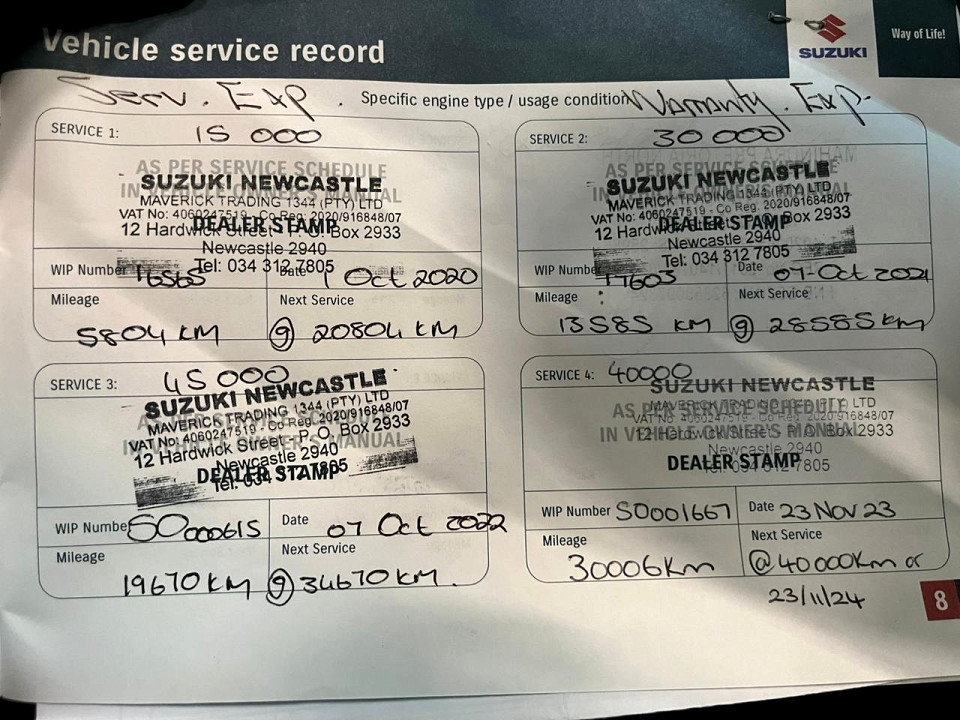 Vehicle service record
SUZUKI
Way of Life!
Serv. Exp. Specific engine type / usage condition Warranty. Exp.
SERVICE 1: 15 000
AS PER SERVICE SCHEDULE
IN VEHICLE OWNER'S MANUAL
SUZUKI NEWCASTLE
MAVERICK TRADING 1344 (PTY) LTD
VAT No: 4060247519 - Co Reg: 2020/916848/07
DEALER STAMP
12 Hardwick Street - P. O. Box 2933
Newcastle 2940
Tel: 034 312 7805
WIP Number 16565 Date 1 Oct 2020
Mileage Next Service
5804 KM @ 20804 KM
SERVICE 2: 30 000
AS PER SERVICE SCHEDULE
SUZUKI NEWCASTLE
MAVERICK TRADING 1344 (PTY) LTD
VAT No: 4060247519 - Co Reg: 2020/916848/07
DEALER STAMP
12 Hardwick Street - P. O. Box 2933
Newcastle 2940
Tel: 034 312 7805
WIP Number 17603 Date 07-Oct 2021
Mileage : Next Service
13585 KM @ 28585 KM
SERVICE 3: 45 000
SUZUKI NEWCASTLE
MAVERICK TRADING 1344 (PTY) LTD
VAT No: 4060247519 - Co Reg: 2020/916848/07
IN VEHICLE OWNER'S MANUAL
12 Hardwick Street - P. O. Box 2933
Newcastle 2940
DEALER STAMP
Tel: 034 312 7805
WIP Number SO000615 Date 07 Oct 2022
Mileage Next Service
19670 KM @ 34670 KM.
SERVICE 4: 40000
SUZUKI NEWCASTLE
MAVERICK TRADING 1344 (PTY) LTD
AS PER SERVICE SCHEDULE
VAT No: 4060247519 - Co Reg: 2020/916848/07
IN VEHICLE OWNER'S MANUAL
12 Hardwick Street - P. O. Box 2933
Newcastle 2940
DEALER STAMP
Tel: 034 312 7805
WIP Number S0001667 Date 23 Nov 23
Mileage Next Service
30006Km @ 40000Km or
23/11/24
8